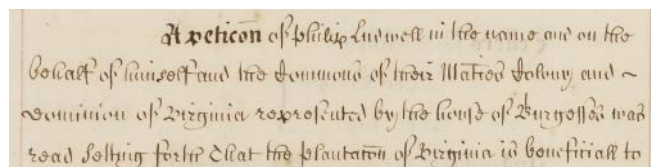 A peticõn of Philip Ludwell in the name and on the
behalf of himself and the Commons of their Maties Colony and ~
Dominion of Virginia represented by the house of Burgesses was
read Setting forth That the plantacõn of Virginia is beneficiall to